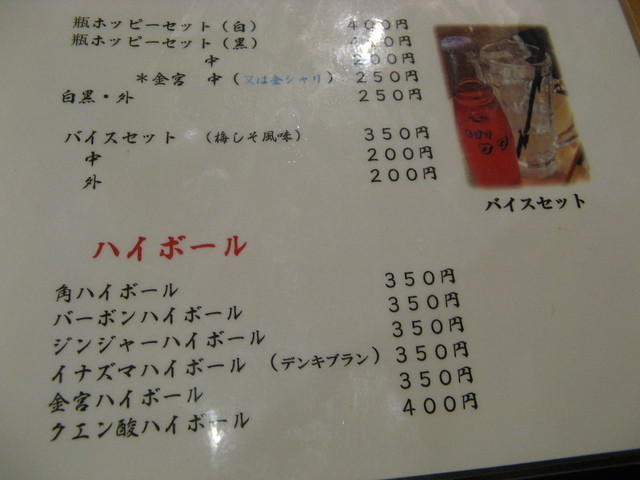 瓶ホッピーセット（白） 400円
瓶ホッピーセット（黒） 円
中 200円
＊金宮 中（又は金シャリ） 250円
白黒・外 250円
バイスセット （梅しそ風味） 350円
中 200円
外 200円
バイスセット
ハイボール
角ハイボール 350円
バーボンハイボール 350円
ジンジャーハイボール 350円
イナズマハイボール （デンキブラン） 350円
金宮ハイボール 350円
クエン酸ハイボール 400円